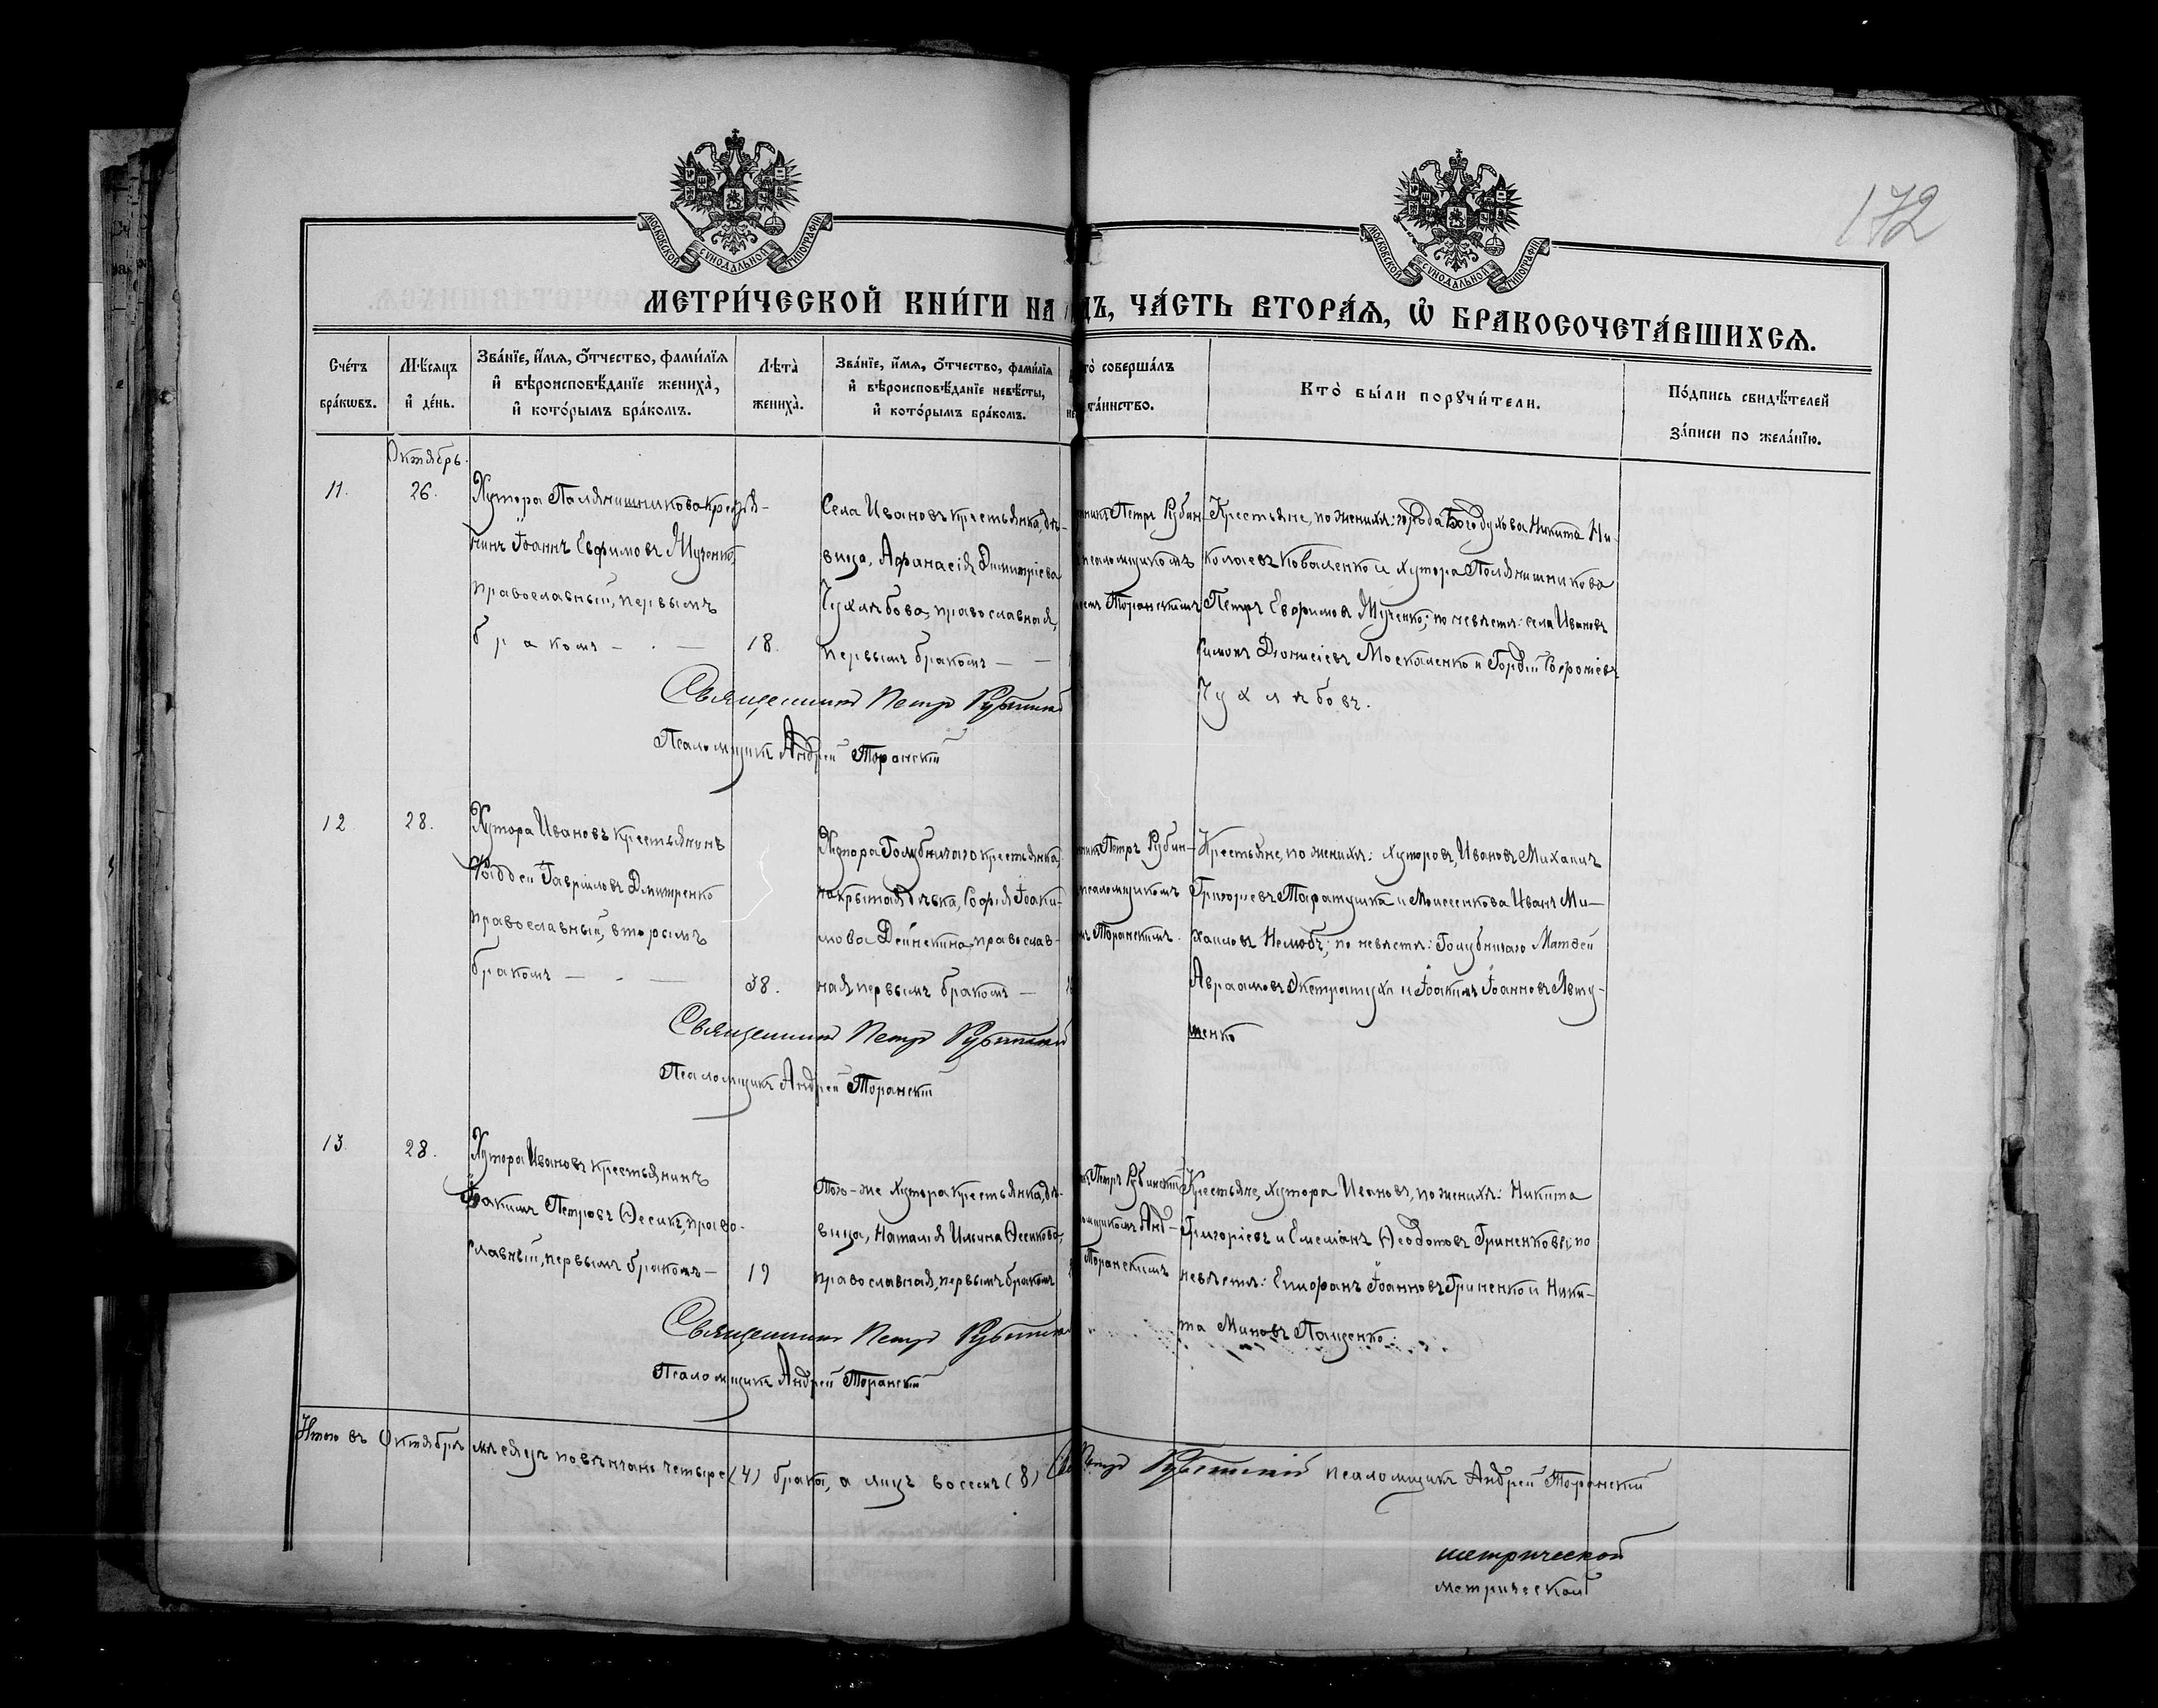 172
МОСКОВСКОЙ СѴНОДАЛЬНОЙ ТИПОГРАФІИ
МОСКОВСКОЙ СѴНОДАЛЬНОЙ ТИПОГРАФІИ
МЕТРИ́ЧЕСКОЙ КНИ́ГИ НА ДЪ, ЧА́СТЬ ВТОРА́Ѧ, Ѽ БРАКОСОЧЕТА́ВШИХСѦ.
Сче́тъ бра́кѡвъ.
Мѣ́сяцъ и҆ де́нь.
Зва́нїе, и҆́мѧ, ѻ҆́тчество, фами́лїѧ
и҆ вѣроисповѣ́данїе жениха̀,
и҆ кото́рымъ бра́комъ.
Лѣ́та̀ жениха̀.
Зва́нїе, и҆́мѧ, ѻ҆́тчество, фами́лїѧ
и҆ вѣроисповѣ́данїе невѣ́сты,
и҆ кото́рымъ бра́комъ.
то̀ соверша́лъ
та́инство.
Кто̀ бы́ли порꙋчи́тели.
По́дпись свидѣ́телей
за́писи по жела́нїю.
Октябрь.
11.
26.
Хутора Поляничникова крестья-
нинъ Іоаннъ Евфимовъ Мученко,
православный, первымъ
бракомъ
18.
Села Ивановъ крестьянка, дѣ-
вица, Афанасія Димитріева
Чухлѣбова, православная,
первымъ бракомъ
Петръ Рубин-
псаломщикомъ
Торанскимъ
Крестьяне, по женихѣ: города Богодухова Никита Ни-
колаевъ Коваленко и хутора Поляничникова
Петръ Евфимовъ Мученко; по невѣстѣ: села Ивановъ
Симонъ Діонисіевъ Москаленко и Гордѣй Софроніевъ
Чухлѣбовъ.
Священникъ Петръ Рубинскій
Псаломщикъ Андрей Торанскій
12
28.
Хутора Ивановъ крестьянинъ
Фаддей Гавріиловъ Дмитренко
православный, вторымъ
бракомъ
38.
Хутора Голубничаго крестьянка,
покрытая дѣвка, Софія Іоаки-
мова Дейнекина, православ-
ная, первымъ бракомъ
Петръ Рубин-
псаломщикомъ
Торанскимъ.
Крестьяне, по женихѣ: хуторовъ, Ивановъ Михаилъ
Григорьевъ Таратушка и Моисеенкова Иванъ Ми-
хаиловъ Нелюбъ; по невѣстѣ: Голубничаго Матвей
Авраамовъ и Іоакимъ Іоанновъ Явту-
шенко
Священникъ Петръ Рубинскій
Псаломщикъ Андрей Торанскій
13.
28.
Хутора Ивановъ крестьянинъ
Іоакимъ Петровъ Ѳесикъ, право-
славный, первымъ бракомъ
19
Того-же хутора крестьянка, дѣ-
вица, Наталія Ильина Ѳесикова,
православная, первымъ бракомъ
Петръ Рубинскій
Анд-
Торанскимъ
Крестьяне, хутора Ивановъ, по женихѣ: Никита
Григоріевъ и Емеліанъ Ѳеодотовъ Гриненковы; по
невѣстѣ: Іоанновъ Гриненко и Ники-
та Миновъ Пащенко.
Священникъ Петръ Рубинскій
Псаломщикъ Андрей Торанскій
Итого въ Октябрѣ мѣсяцѣ повѣнчано четыре (4) брака, а лицъ восемь (8) Петръ Рубинскій псаломщикъ Андрей Торанскій
метрической
метрической